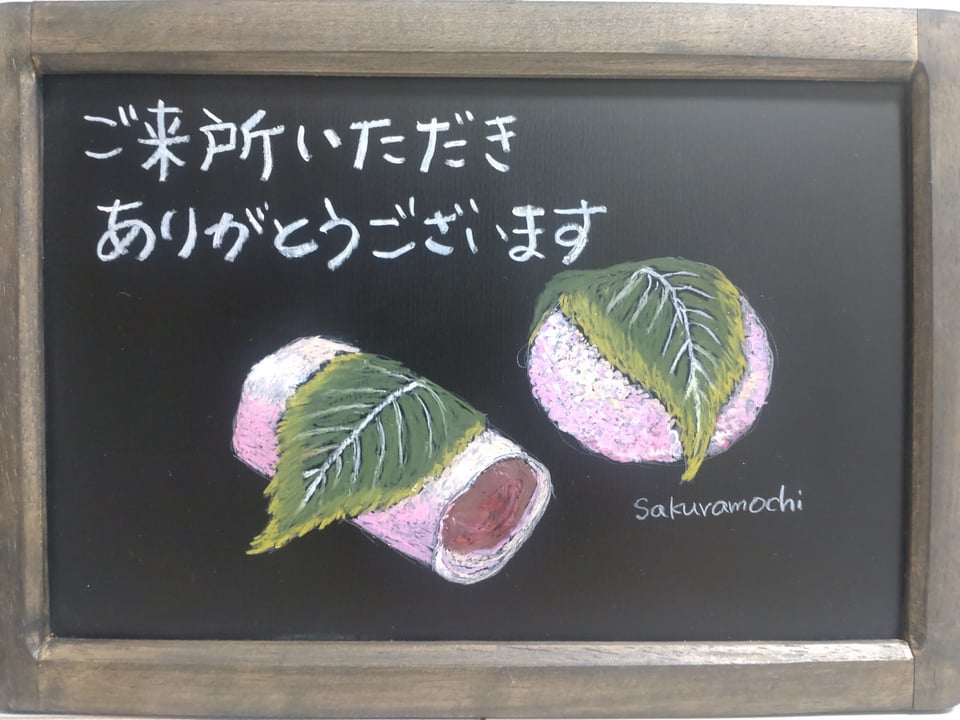 ご来所いただき
ありがとうございます
Sakuramochi